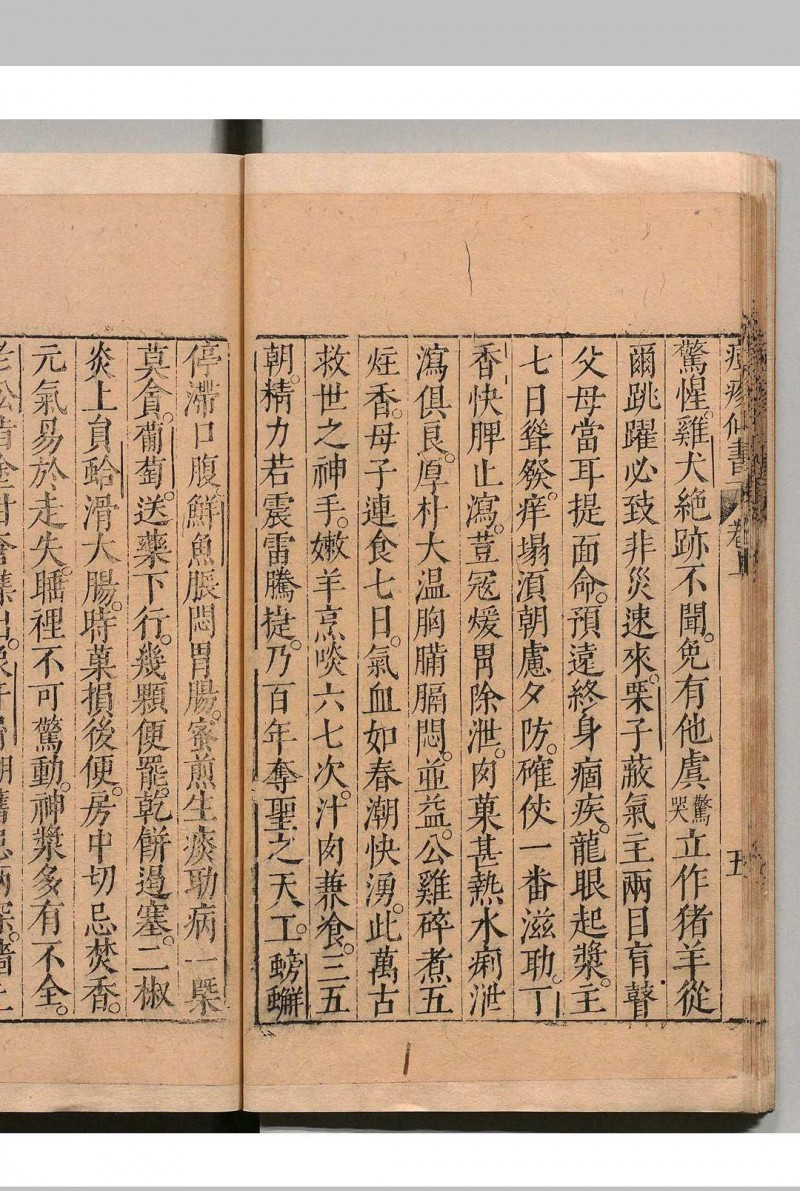 仙書 卷 五
驚惺。雞犬絶跡不聞。免有他虞驚哭立作猪羊從
爾跳躍必致非災速來。栗子蔽氣主兩目肓瞽
父母當耳提面命。預遠終身痼疾。龍眼起漿。主
七日聳發。痒塌湏朝慮夕防。確使一番滋助。丁
香快脾止瀉。荳冦煖胃除泄。肉菓甚熱水痢泄
瀉俱良。厚朴大温胸腩膈悶。並益。公雞碎煮五
炷香。母子連食七日。氣血如春潮快湧。此萬古
救世之神手。嫩羊烹啖六七次。汁肉兼飡。三五
朝。精力若震雷騰㨗。乃百年奪聖之天工。螃蠏
停滯口腹鮮魚脹悶胃腸。蜜煎生痰助病一槩
莫貪。葡萄。送藥下行。幾顆便罷。乾餅過塞。二椒
炎上負蛤滑大腸。時菓損後便。房中切忌焚香。
元氣易於走失。睡裡不可驚動。神漿多有不全。